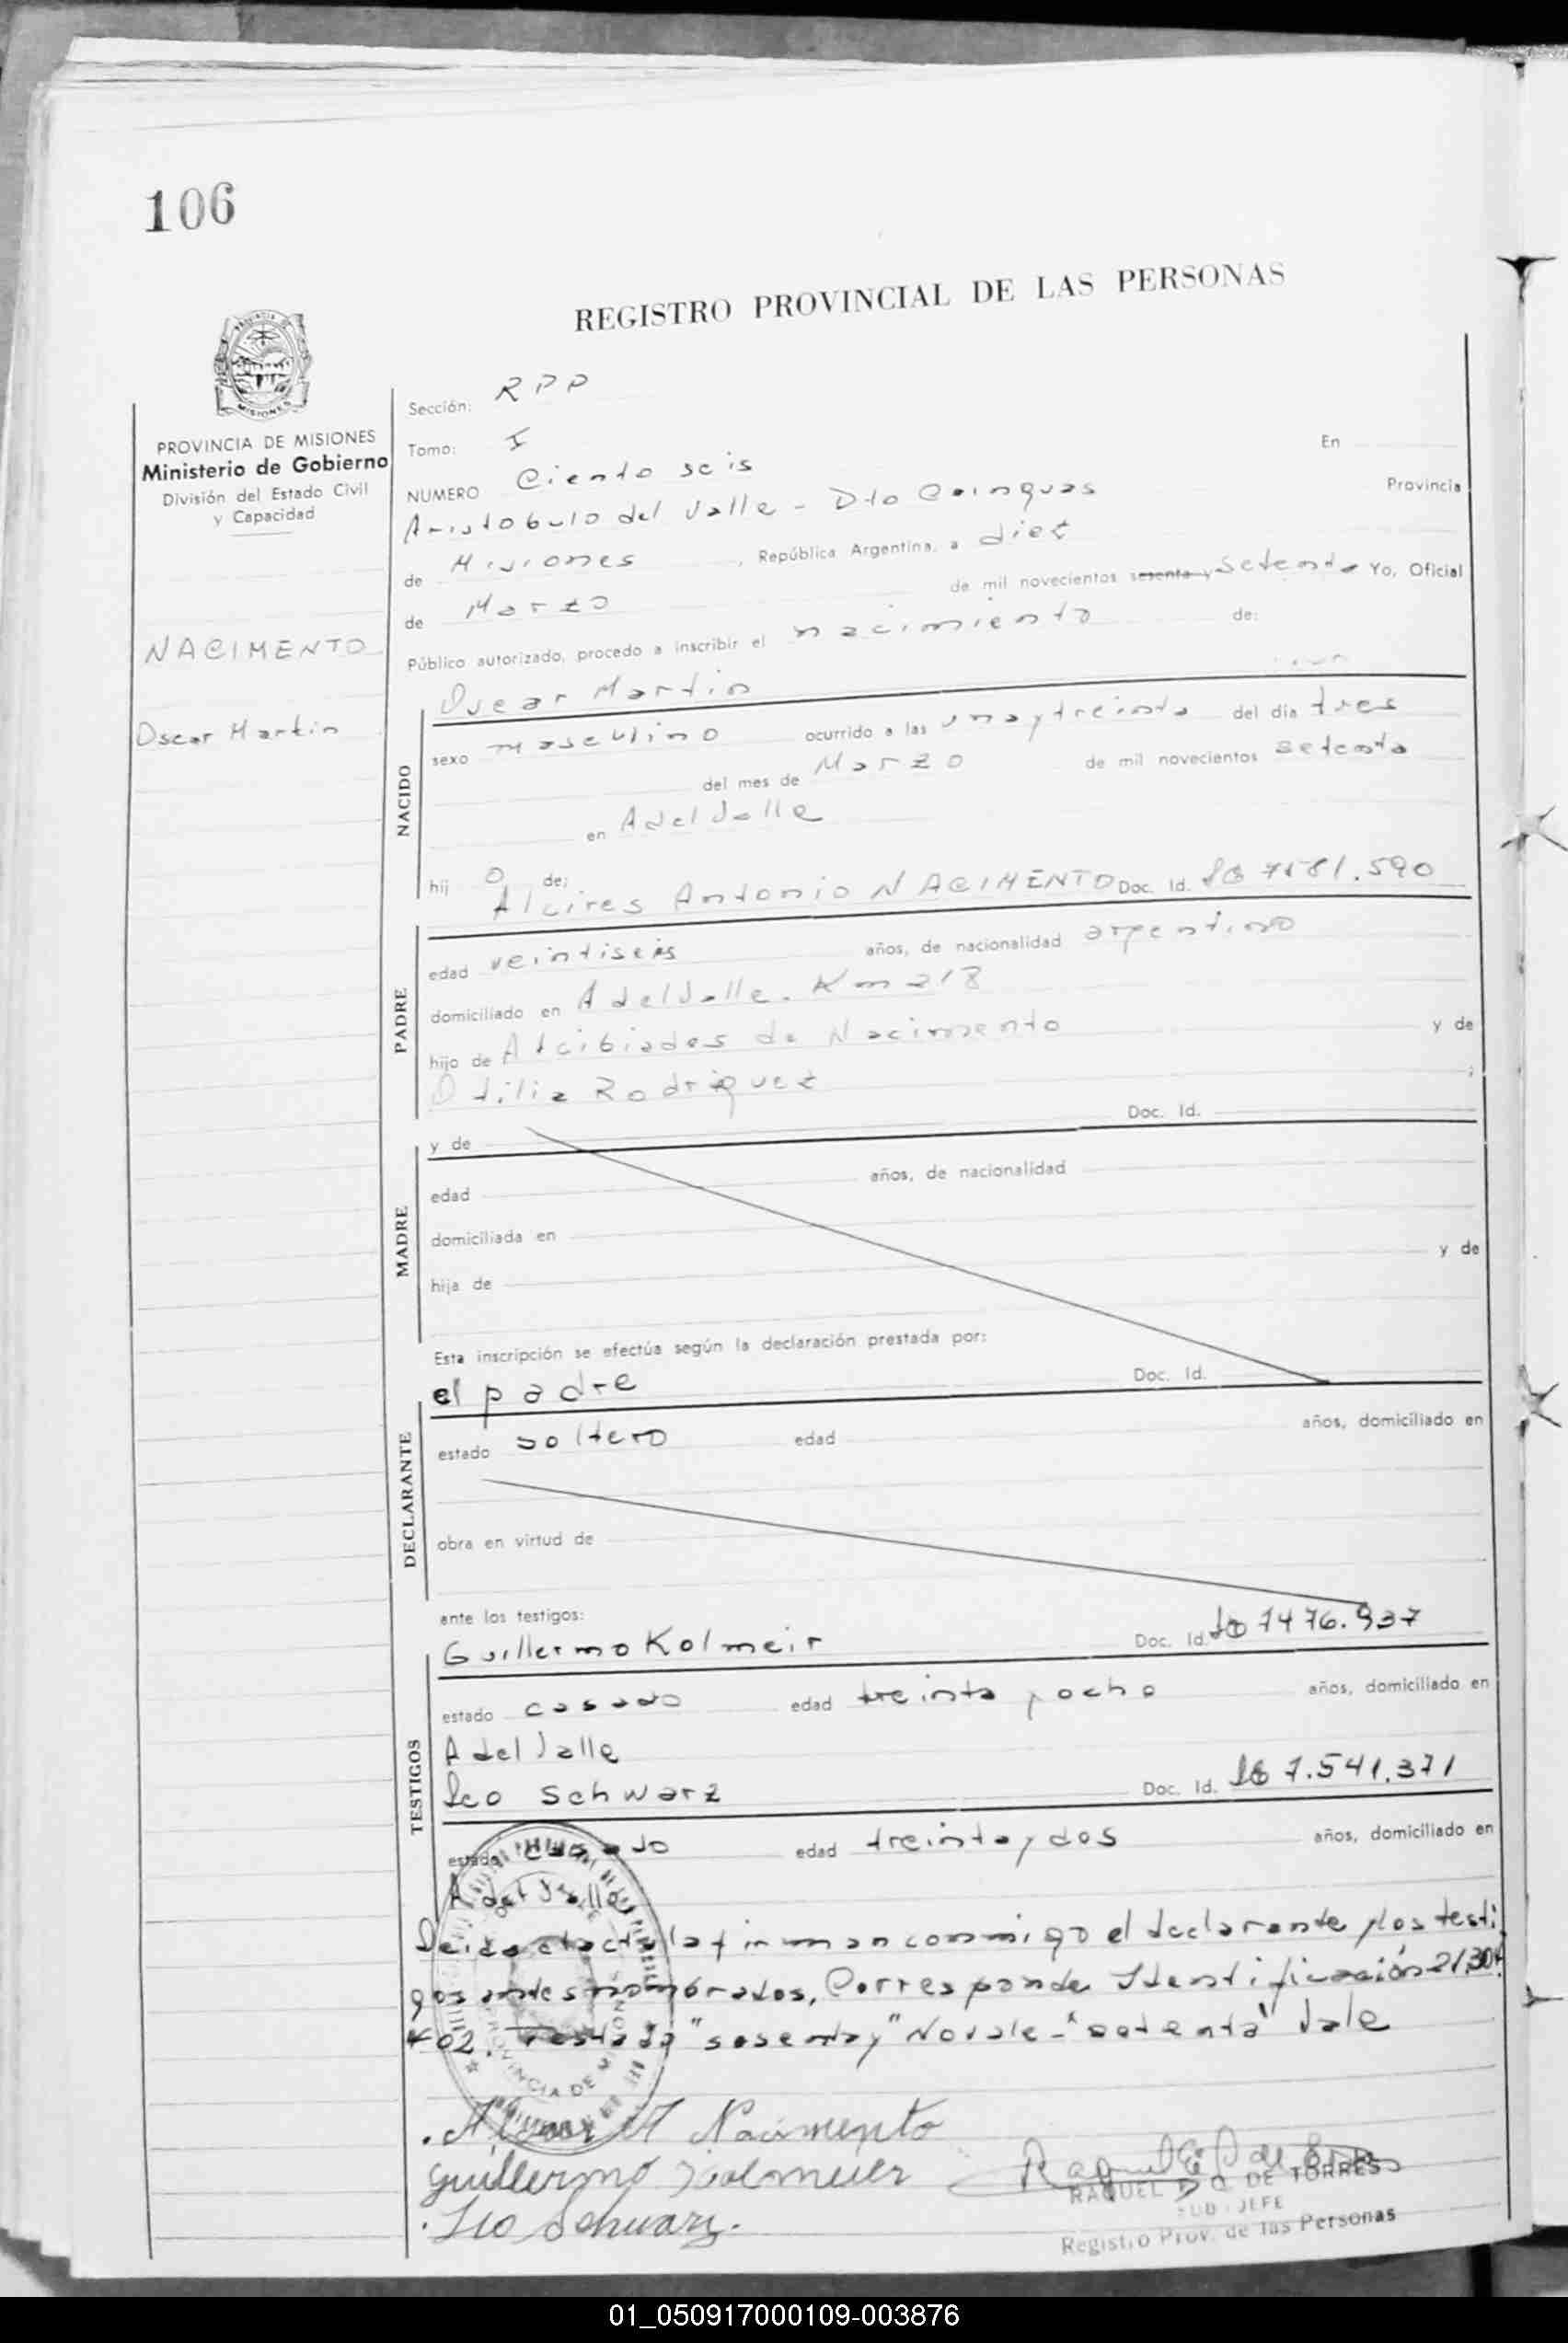 106
REGISTRO PROVINCIAL DE LAS PERSONAS
PROVINCIA DE MISIONES
Ministerio de Gobierno
División del Estado Civil
y Capacidad
NACIMENTO
Oscar Martin
Sección: RPP
Tomo: I En
NUMERO Ciento seis
Aristobulo del Valle - Dto Cainguas Provincia
de Misiones, República Argentina, a diez
de Marzo de mil novecientos sesenta y Setenta Yo, Oficial
Público autorizado, procedo a inscribir el nacimiento de:
Oscar Martin
NACIDO
sexo masculino ocurrido a las una y treinta del día tres
del mes de Marzo de mil novecientos setenta
en A del Valle
hij o de:
Alcires Antonio NACIMENTO Doc. Id. 7581.590
PADRE
edad veintiseis años, de nacionalidad argentino
domiciliado en A del Valle. Km 218
hijo de Alcibiades de Nacimento y de
Otilia Rodriguez ;
MADRE
y de Doc. Id.
edad años, de nacionalidad
domiciliada en
hija de y de
Esta inscripción se efectúa según la declaración prestada por:
el padre Doc. Id.
DECLARANTE
estado soltero edad años, domiciliado en
obra en virtud de
ante los testigos:
Guillermo Kolmeir Doc. Id. 7476.937
TESTIGOS
estado casado edad treinta y ocho años, domiciliado en
A del Valle
Leo Schwarz Doc. Id. 7.541.371
estado casado edad treinta y dos años, domiciliado en
A del Valle
Leida el acta la firman conmigo el declarante y los testi
gos antes nombrados. Corresponde Identificación 21.304
402. Testado "sesenta y" No vale - "setenta" Vale
PROVINCIA DE MISIONES
A Nacimento
Guillermo Kolmeier
Leo Schwarz.
RAQUEL DE TORRES
SUB-JEFE
Registro Prov. de las Personas
01_050917000109-003876